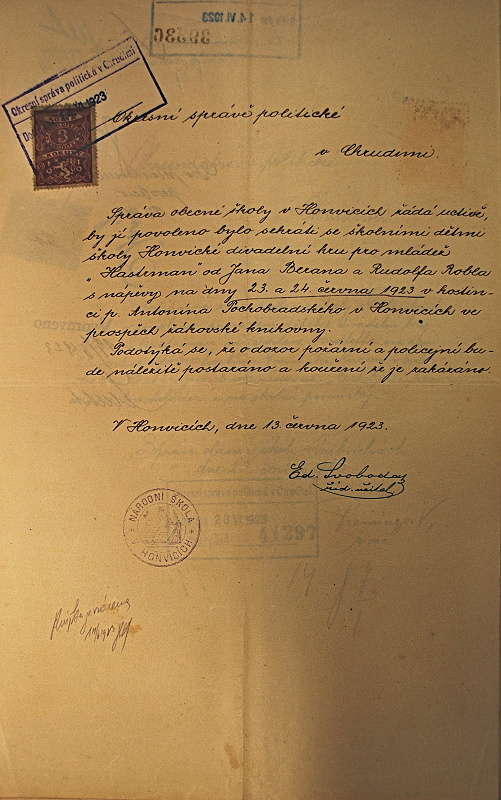 14.VI.1923
39230
Okresní správa politická v Chrudimi
1923
3
KORUNY
Okresní správě politické
v Chrudimi.
Správa obecné školy v Honvicích žádá uctivě,
by jí povoleno bylo sehráti se školními dětmi
školy Honvické divadelní hru pro mládež
„Hastrman" od Jana Berana a Rudolfa Kobla
s nápěvy na dny 23. a 24. června 1923 v hostin-
ci p. Antonína Pochobradského v Honvicích ve
prospěch žákovské knihovny.
Podotýká se, že o dozor požární a policejní bu-
de náležitě postaráno a kouření že je zakázáno.
V Honvicích, dne 13. června 1923.
Ed. Svoboda,
říd. učitel
NÁRODNÍ ŠKOLA
HONVICÍCH
41297